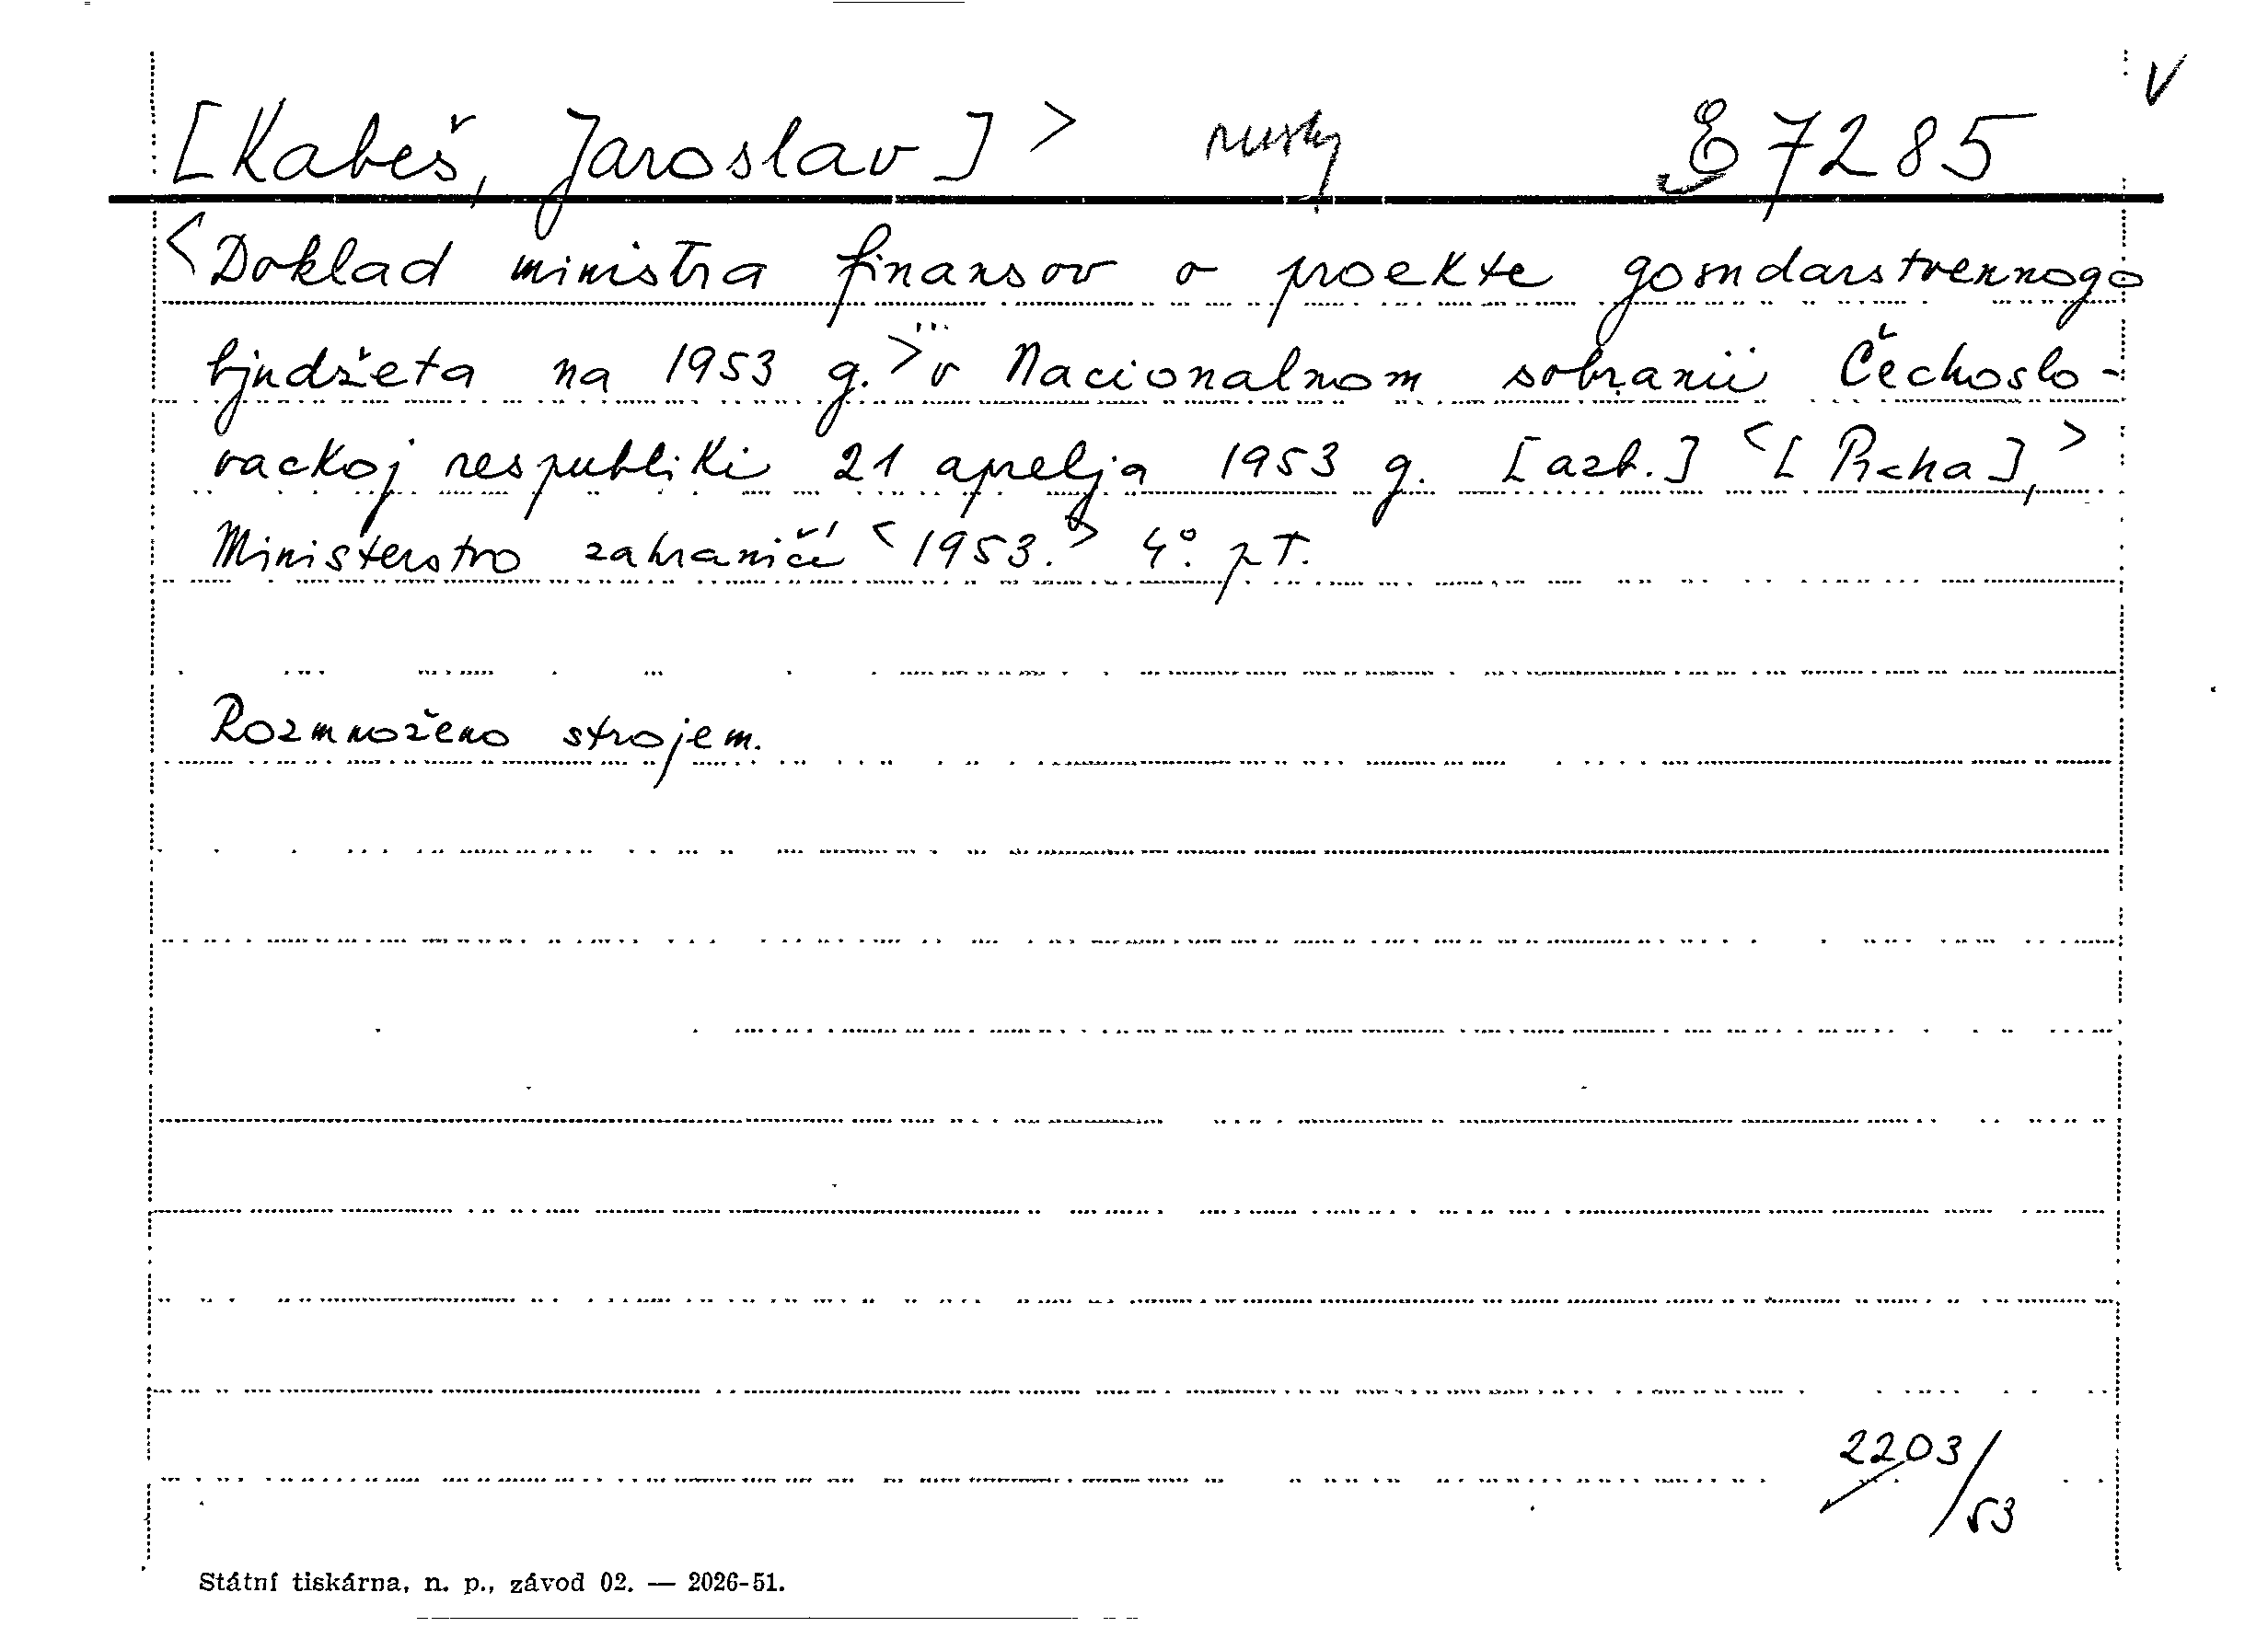 V
[Kabeš, Jaroslav] > rusky E 7285
<Doklad ministra finansov o proekte gosudarstvennogo
bjudžeta na 1953 g.> ... v Nacionalnom sobranii Čechoslo-
vackoj respubliki 21 aprelja 1953 g. [azb.] <[Praha],>
Ministerstvo zahraničí <1953.> 4°. pT.
Rozmnoženo strojem.
2203/53
Státní tiskárna, n. p., závod 02. — 2026-51.